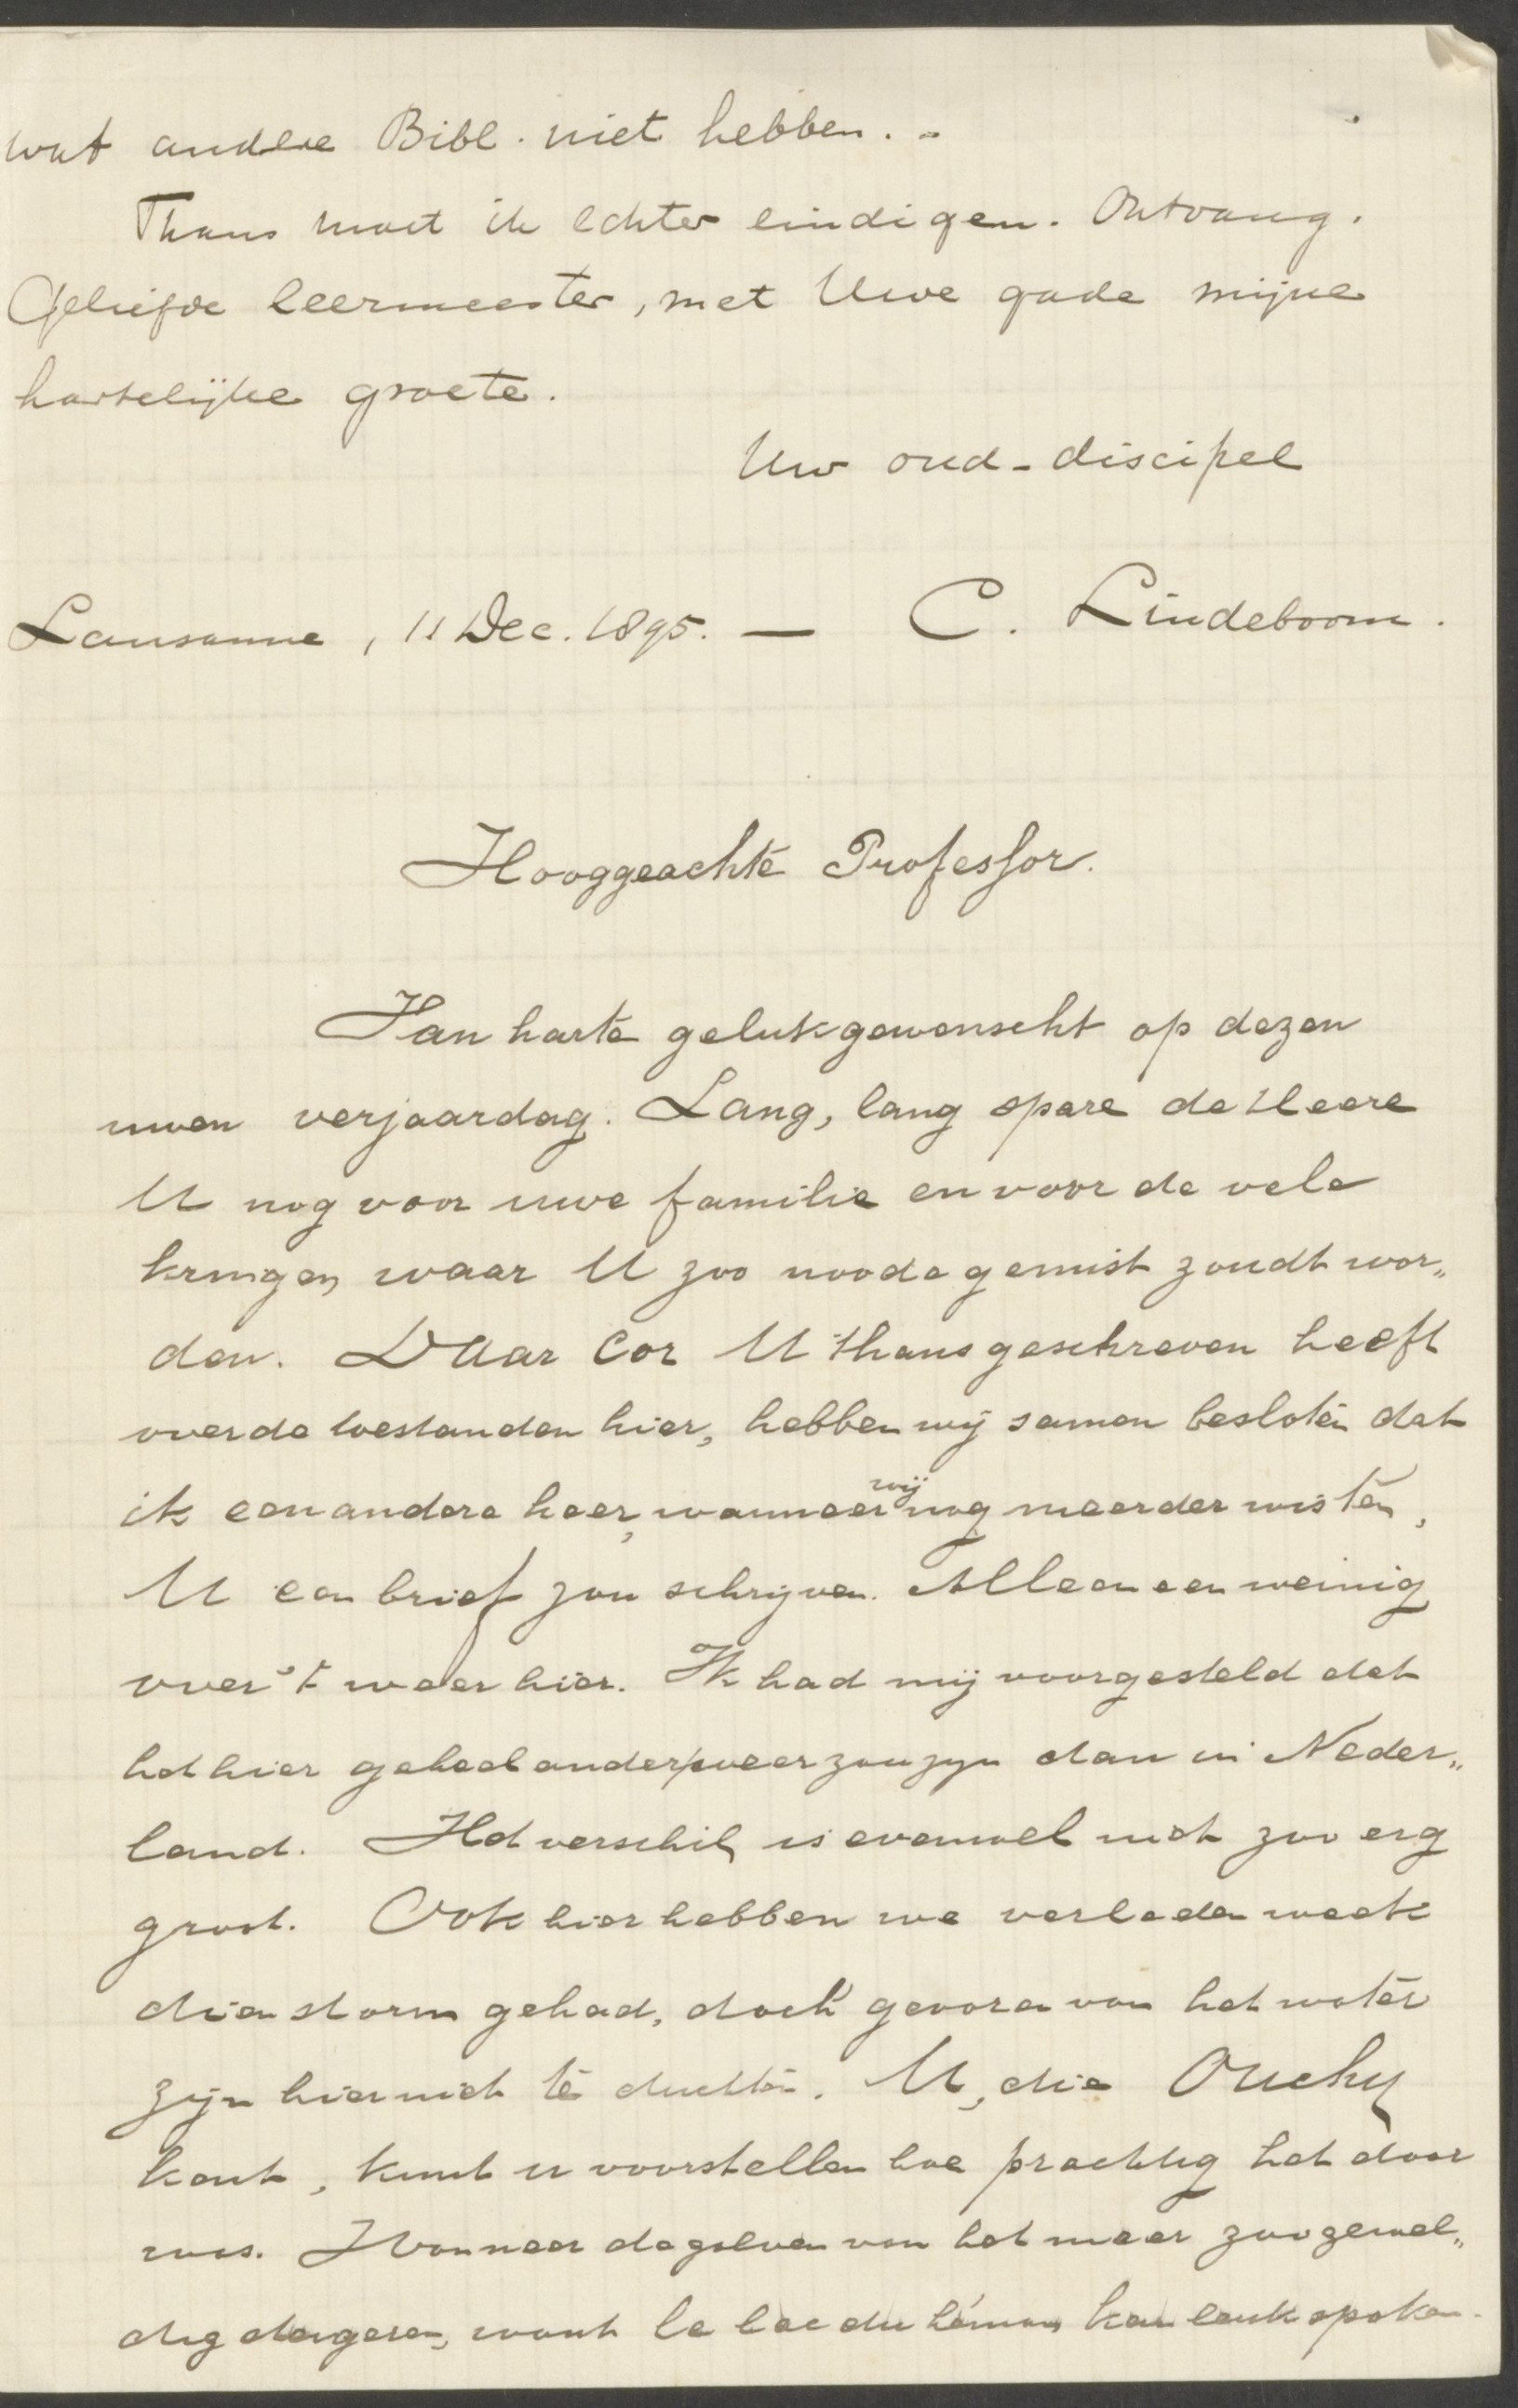 wat andere Bibl. niet hebben. -
Thans moet ik echter eindigen. Ontvang.
Geliefde leermeester, met Uwe gade mijne
hartelijke groete.
Uw oud-discipel
Lausanne, 11 Dec. 1895. — C. Lindeboom.
Hooggeachte Professor.
Van harte gelukgewenscht op dezen
uwen verjaardag. Lang, lang spare de Heere
U nog voor uwe familie en voor de vele
kringen, waar U zoo noode gemist zoudt wor„
den. Daar Cor U thans geschreven heeft
over de toestanden hier, hebben wij samen besloten dat
ik een andere keer, wanneer wij nog meerder wisten,
U een brief zou schrijven. Alleen een weinig
over 't weer hier. Ik had mij voorgesteld dat
het hier geheel ander weer zou zijn dan in Neder„
land. Het verschil is evenwel niet zoo erg
groot. Ook hier hebben we verleden week
dien storm gehad, doch gevaren van het water
zijn hier niet te duchten. U, die Ouchy
kent, kunt u voorstellen hoe prachtig het daar
was. Wanneer de golven van het meer zoo gewel„
dig daar, want le lac du Léman kan leuk spoken.